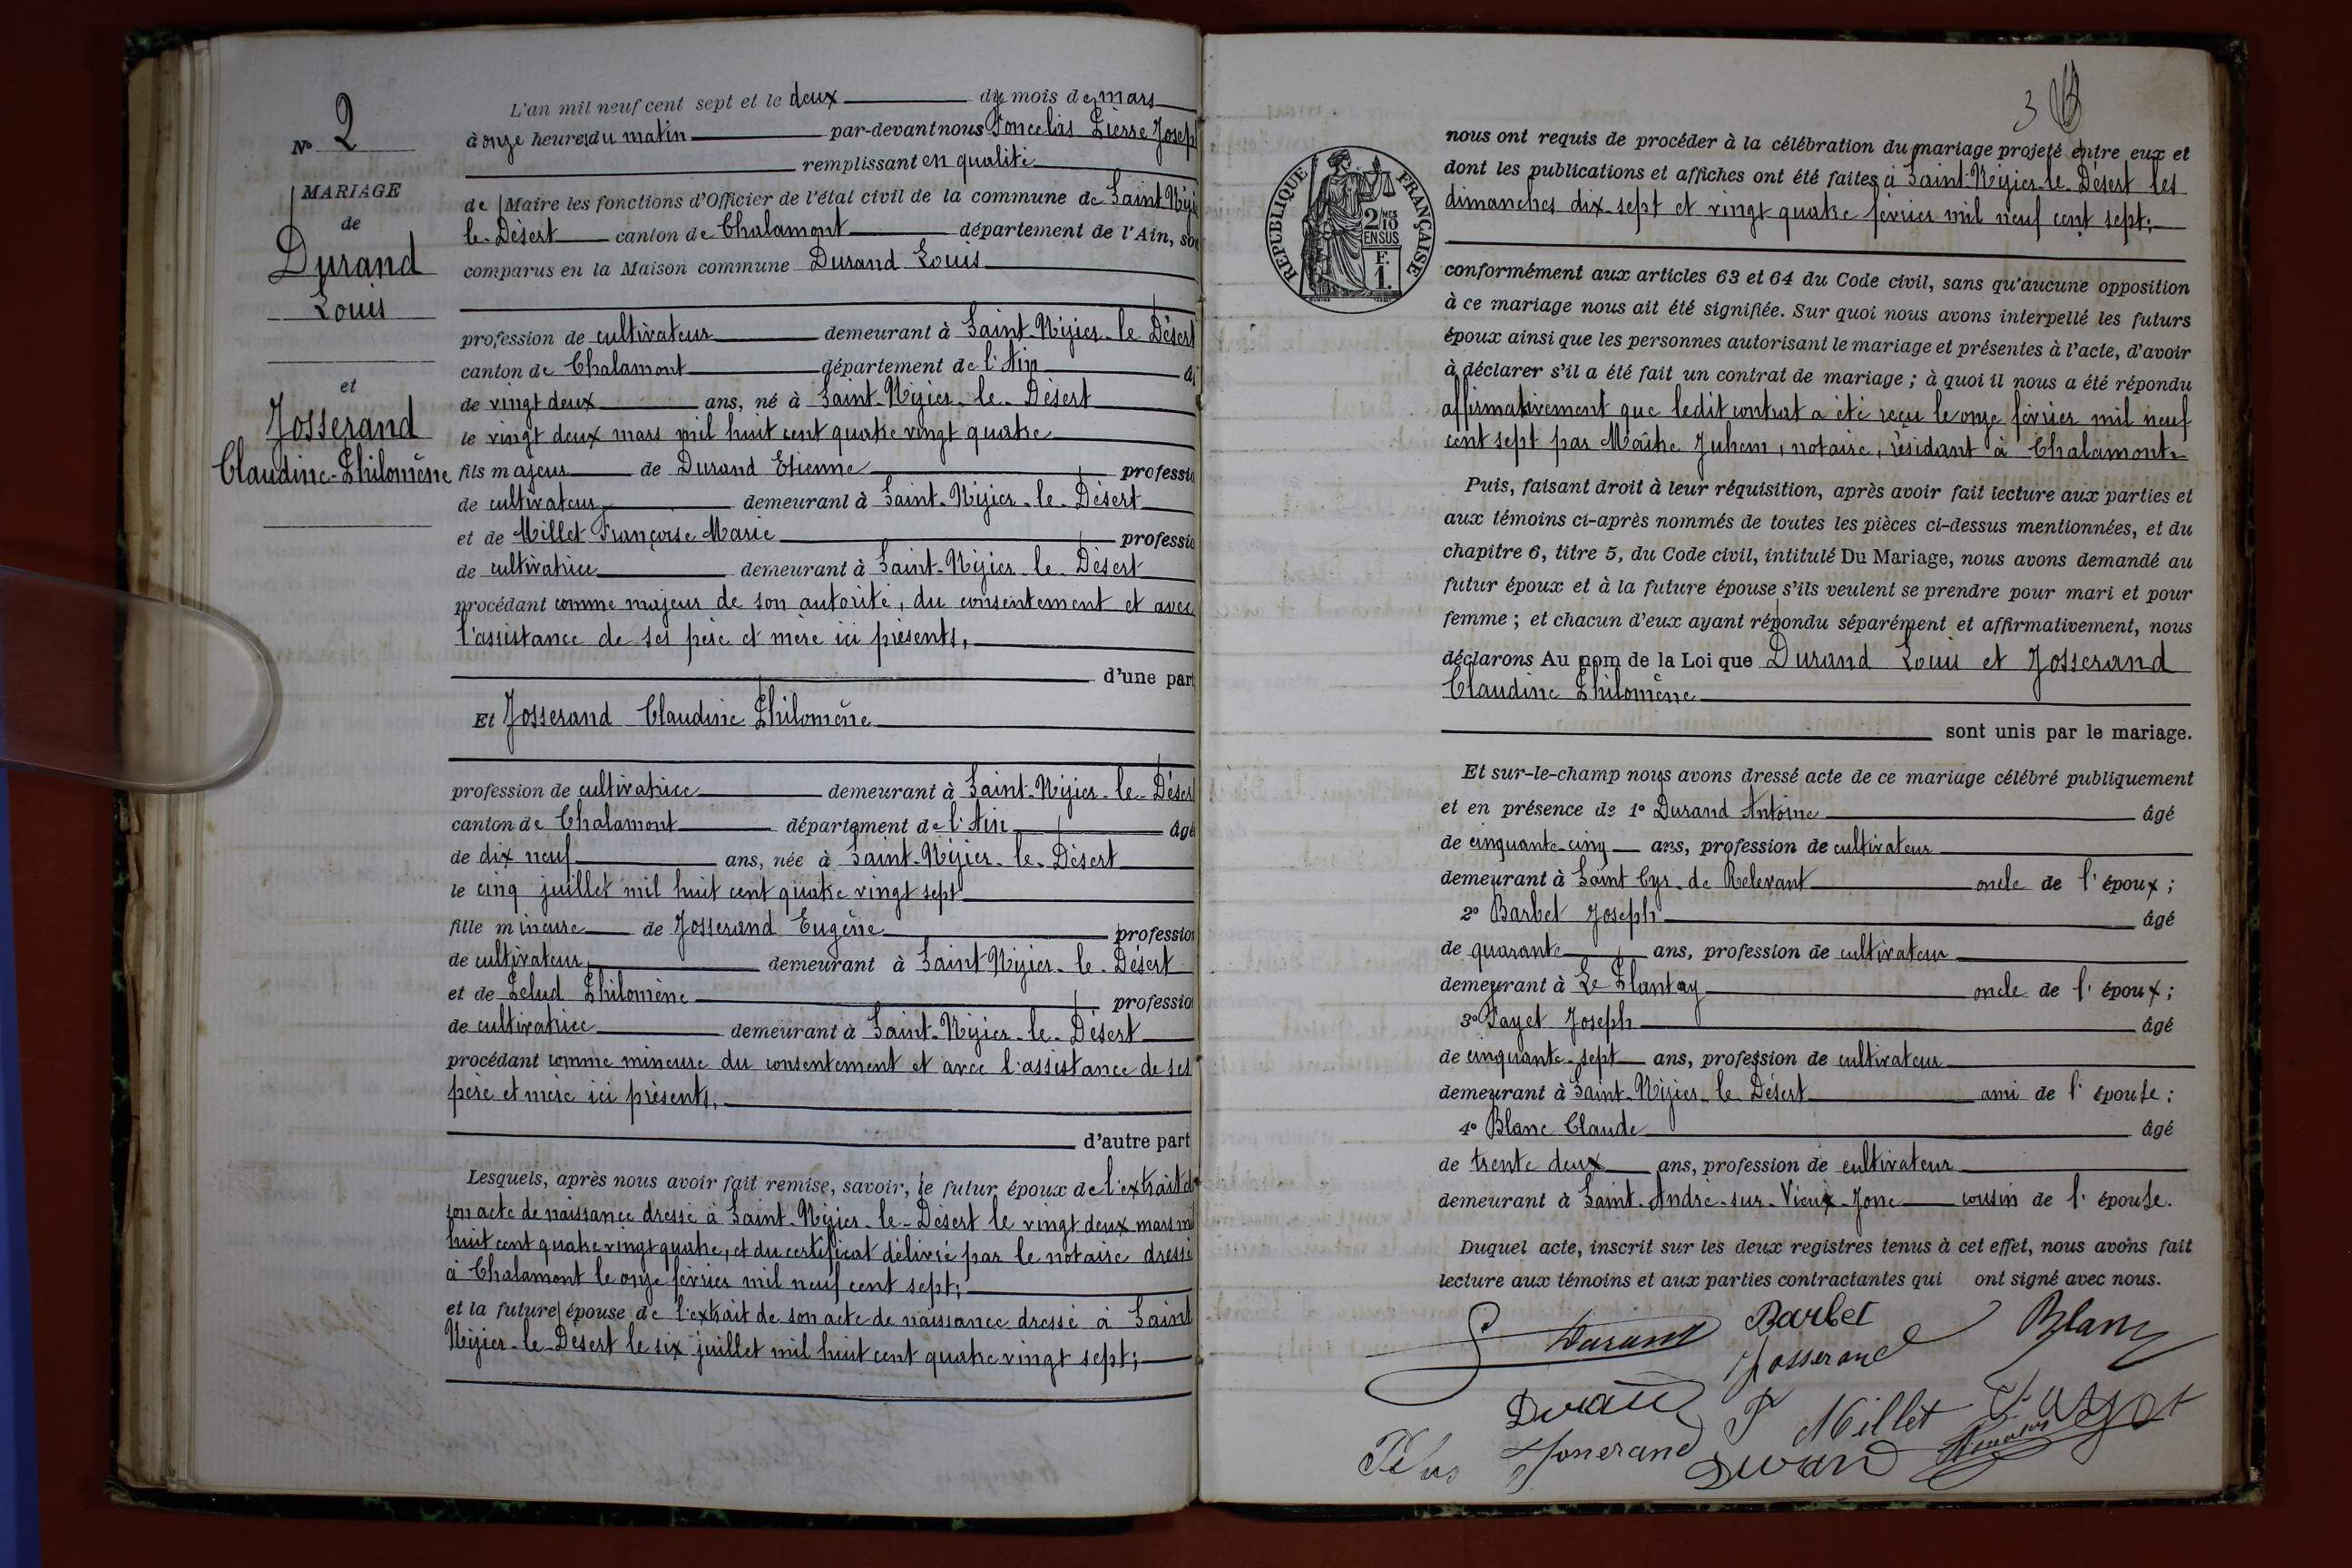 N° 2
MARIAGE
de
Durand
Louis
et
Josserand
Claudine-Philomène
L'an mil neuf cent sept et le deux du mois de mars
à onze heures du matin par-devant nous Poncelas Pierre Josep
remplissant en qualité
de Maire les fonctions d'Officier de l'état civil de la commune de Saint Nizi
le-Désert canton de Chalamont département de l'Ain, son
comparus en la Maison commune Durand Louis
profession de cultivateur demeurant à Saint-Nizier-le Désert
canton de Chalamont département de l'Ain â
de vingt deux ans, né à Saint-Nizier-le-Désert
le vingt deux mars mil huit cent quatre vingt quatre
fils majeur de Durand Etienne professio
de cultivateur, demeurant à Saint-Nizier-le-Désert
et de Millet Françoise Marie professio
de cultivatrice demeurant à Saint-Nizier-le-Désert
procédant comme majeur de son autorité, du consentement et avec
l'assistance de ses père et mère ici présents,
d'une part
Et Josserand Claudine Philomène
profession de cultivatrice demeurant à Saint-Nizier-le-Désert
canton de Chalamont département de l'Ain âgé
de dix neuf ans, née à Saint-Nizier-le-Désert
le cinq juillet mil huit cent quatre vingt sept
fille mineure de Josserand Eugène profession
de cultivateur, demeurant à Saint Nizier-le-Désert
et de Pelud Philomène professio
de cultivatrice demeurant à Saint-Nizier-le-Désert
procédant comme mineure du consentement et avec l'assistance de ses
père et mère ici présents,
d'autre part
Lesquels, après nous avoir fait remise, savoir, le futur époux de l'extrait de
son acte de naissance dressé à Saint-Nizier-le-Désert le vingt deux mars mil
huit cent quatre vingt quatre, et du certificat délivré par le notaire dressé
à Chalamont le onze février mil neuf cent sept;
et la future épouse de l'extrait de son acte de naissance dressé à Saint
Nizier-le-Désert le six juillet mil huit cent quatre vingt sept;
3
RÉPUBLIQUE FRANÇAISE
2/10 MES
EN SUS
F.
1.
nous ont requis de procéder à la célébration du mariage projeté entre eux et
dont les publications et affiches ont été faites à Saint-Nizier-le-Désert les
dimanches dix-sept et vingt quatre février mil neuf cent sept;
conformément aux articles 63 et 64 du Code civil, sans qu'aucune opposition
à ce mariage nous ait été signifiée. Sur quoi nous avons interpellé les futurs
époux ainsi que les personnes autorisant le mariage et présentes à l'acte, d'avoir
à déclarer s'il a été fait un contrat de mariage; à quoi il nous a été répondu
affirmativement que ledit contrat a été reçu le onze février mil neuf
cent sept par Maître Juhem, notaire, résidant à Chalamont.
Puis, faisant droit à leur réquisition, après avoir fait lecture aux parties et
aux témoins ci-après nommés de toutes les pièces ci-dessus mentionnées, et du
chapitre 6, titre 5, du Code civil, intitulé Du Mariage, nous avons demandé au
futur époux et à la future épouse s'ils veulent se prendre pour mari et pour
femme; et chacun d'eux ayant répondu séparément et affirmativement, nous
déclarons Au nom de la Loi que Durand Louis et Josserand
Claudine Philomène
sont unis par le mariage.
Et sur-le-champ nous avons dressé acte de ce mariage célébré publiquement
et en présence de 1° Durand Antoine âgé
de cinquante-cinq ans, profession de cultivateur
demeurant à Saint Cyr-de Relevant oncle de l'époux;
2° Barbet Joseph âgé
de quarante ans, profession de cultivateur
demeurant à Le Plantay oncle de l'époux;
3° Payet Joseph âgé
de cinquante-sept ans, profession de cultivateur
demeurant à Saint-Nizier-le Désert ami de l'épouse;
4° Blanc Claude âgé
de trente deux ans, profession de cultivateur
demeurant à Saint-André-sur-Vieux-Jonc cousin de l'épouse.
Duquel acte, inscrit sur les deux registres tenus à cet effet, nous avons fait
lecture aux témoins et aux parties contractantes qui ont signé avec nous.
Durand Barbet Blanc
Josserand
Durand F Millet Payet
Josserand Durand